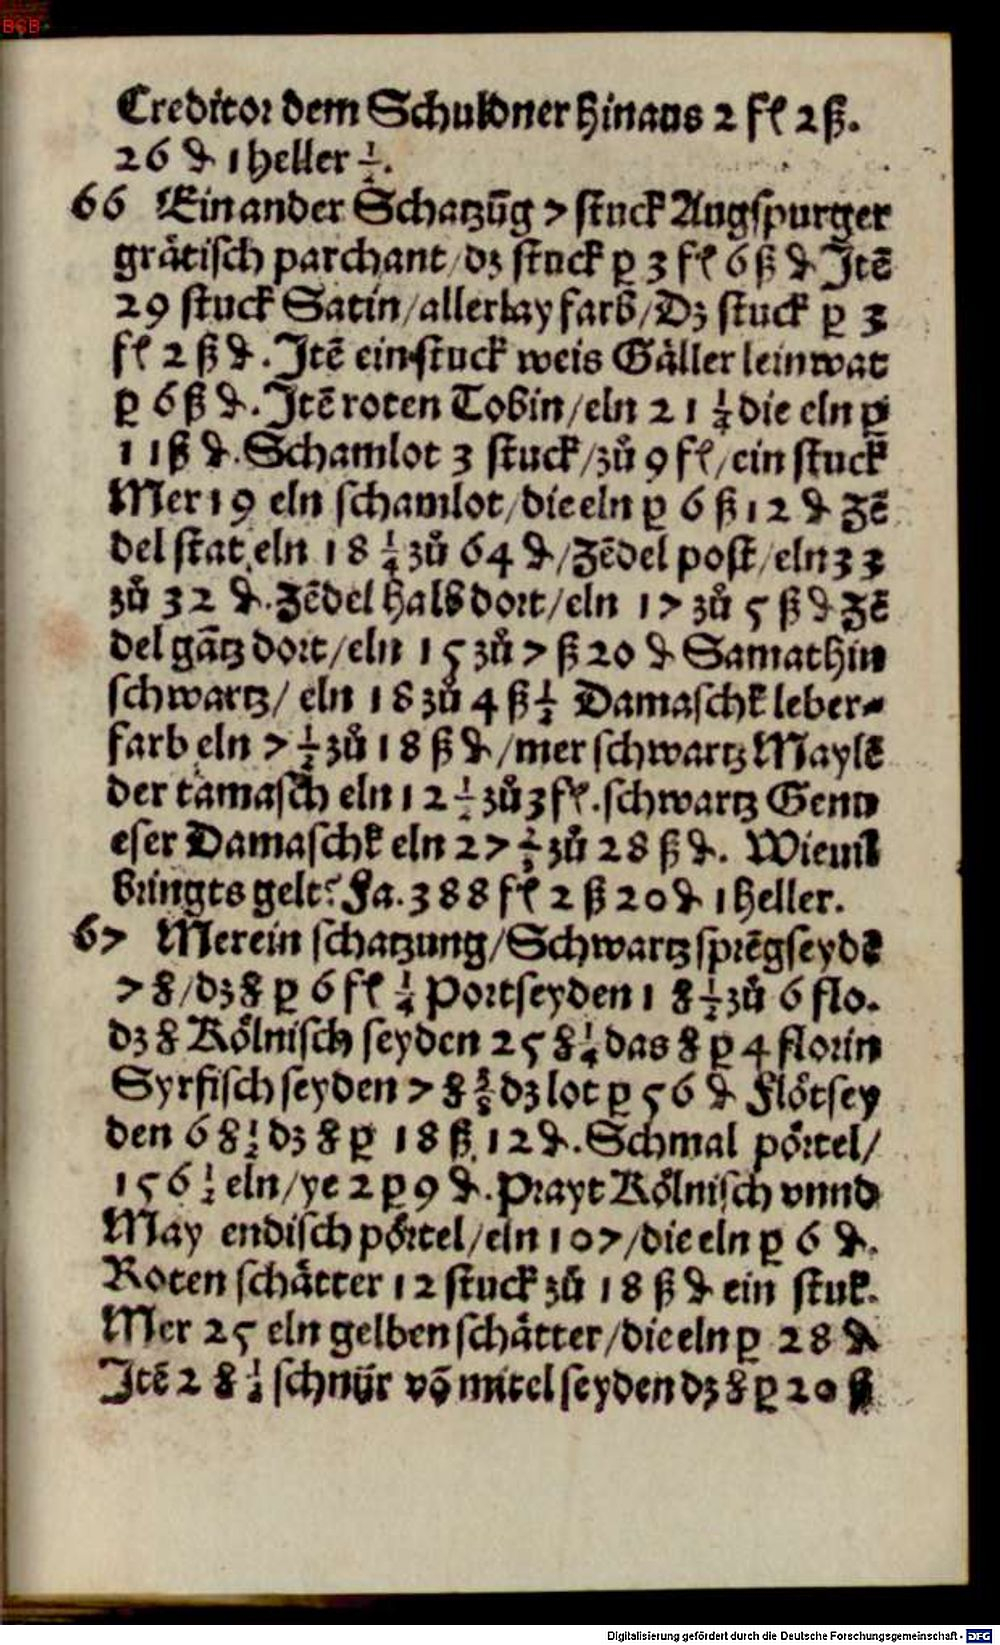 BSB
Creditor dem Schuldner hinaus 2 fl 2 ß.
26 ₰ 1 heller ½.
66 Ein ander Schatzūg 7 stuck Augspurger
grätisch parchant/dz stuck ꝑ 3 fl 6 ß ₰ Jtē
29 stuck Satin/allerlay farb/Dz stuck ꝑ 3
fl 2 ß ₰. Jtē ein stuck weis Gäller leinwat
ꝑ 6 ß ₰. Jtē roten Tobin/eln 21 ¼ die eln ꝑ
11 ß ₰. Schamlot 3 stuck/zů 9 fl/ein stuck
Mer 19 eln schamlot/die eln ꝑ 6 ß 12 ₰ Zē
del stat eln 18 ¼ zů 64 ₰/Zēdel post/eln 33
zů 32 ₰. Zēdel halb dort/eln 17 zů 5 ß ₰ Zē
del gātz dort/eln 15 zů 7 ß 20 ₰ Samathin
schwartz/ eln 18 zů 4 ß ½ Damaschk leber⸗
farb eln 7 ½ zů 18 ß ₰/mer schwartz Maylē
der tamasch eln 12 ½ zů 3 fl. schwartz Genu
eser Damaschk eln 27 ⅔ zů 28 ß ₰. Wieuil
bringts gelt? Fa. 388 fl 2 ß 20 ₰ 1 heller.
67 Mer ein schatzung/Schwartz sprēgseydē
7 ℔/dz ℔ ꝑ 6 fl ¼ Portseyden 1 ℔ ½ zů 6 flo.
dz ℔ Kölnisch seyden 25 ℔ ¼ das ℔ ꝑ 4 florin
Syrfisch seyden 7 ℔ ⅜ dz lot ꝑ 56 ₰ Flötsey
den 6 ℔ ½ dz ℔ ꝑ 18 ß 12 ₰. Schmal pörtel/
156 ½ eln/ye 2 ꝑ 9 ₰. Prayt Kölnisch vnnd
May endisch pörtel/eln 107/die eln ꝑ 6 ₰.
Roten schätter 12 stuck zů 18 ß ₰ ein stuk.
Mer 25 eln gelben schätter/die eln ꝑ 28 ₰
Jtē 2 ℔ ½ schnür vō mitel seyden dz ℔ ꝑ 20 ß
Digitalisierung gefördert durch die Deutsche Forschungsgemeinschaft - DFG